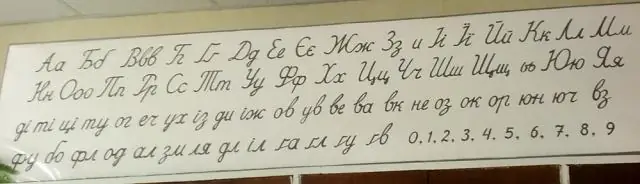 Аа Бб Ввв Гг Ґґ Дд Ее Єє Жж Зз и Іі Її Йй Кк Лл Мм
Нн Ооо Пп Рр Сс Тт Уу Фф Хх Цц Чч Шш Щщ ь Юю Яя
ді ті ці ту ог еч ух із ди іж ов ув ве ва вк не оз ок ор юн юч вз
фу бо фл од ал зм ля дл іл га гл гу гв 0. 1. 2. 3. 4. 5. 6. 7. 8. 9